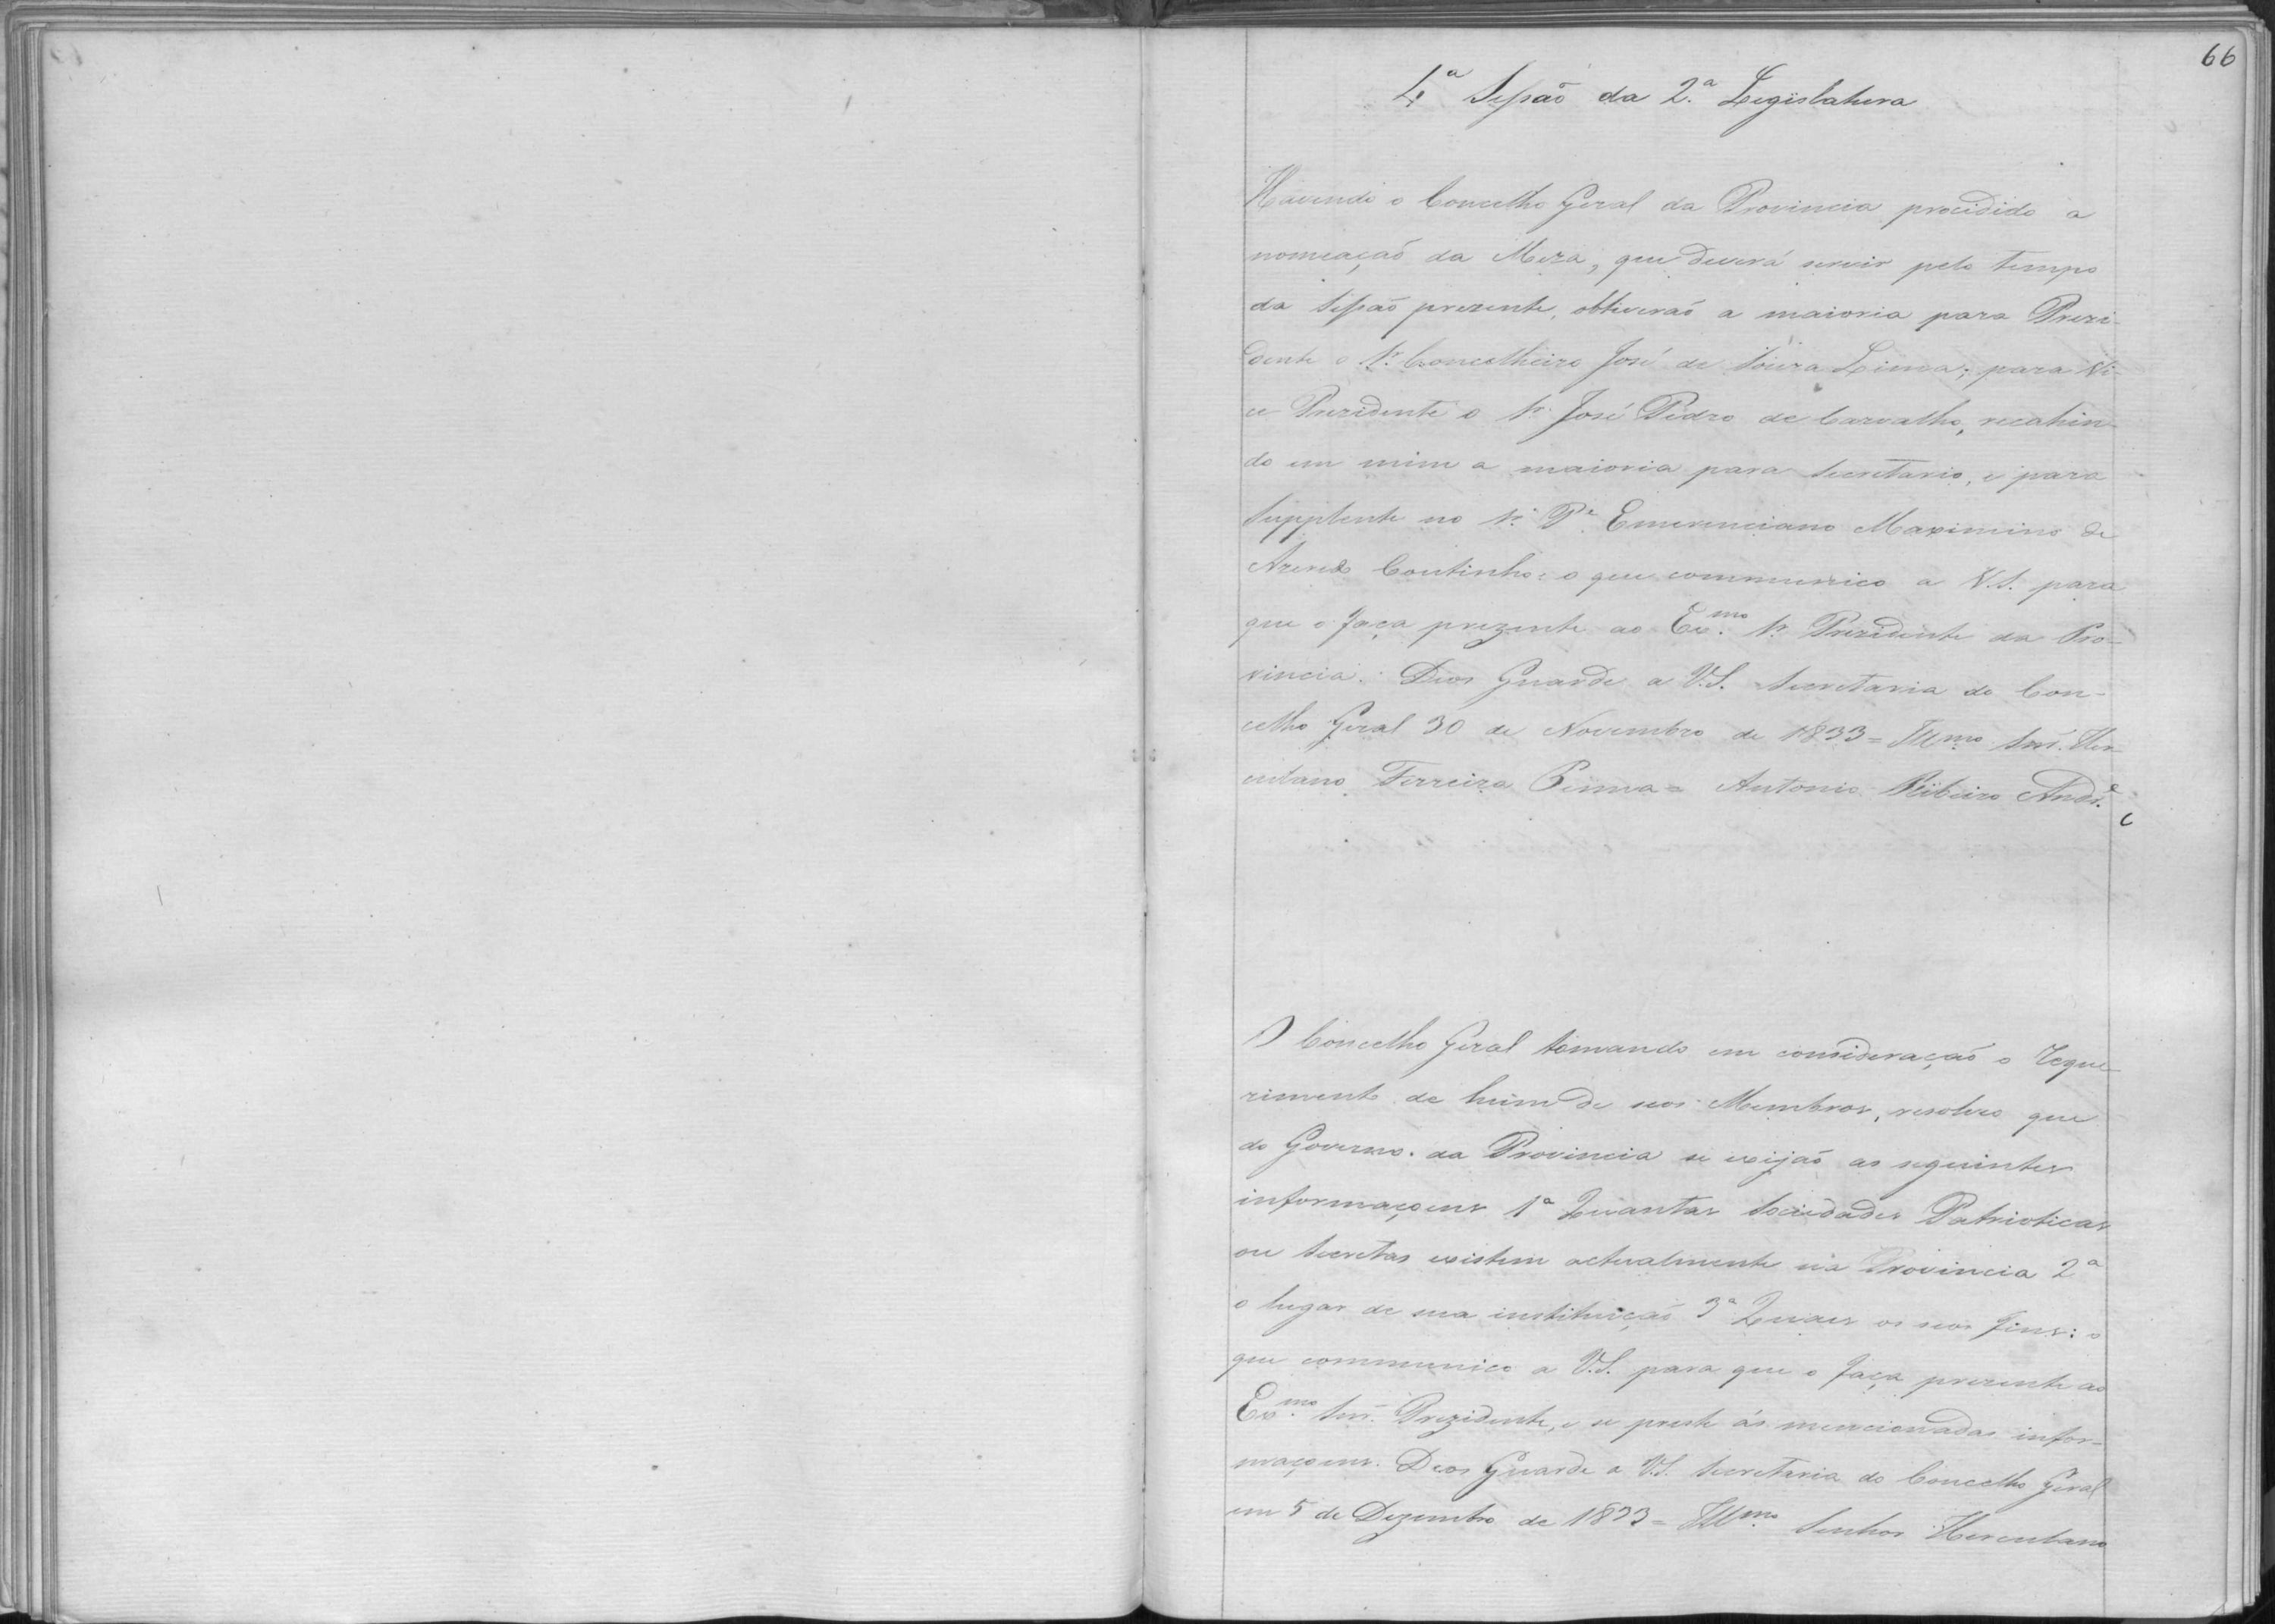 66
4ª Sessaõ da 2.ª Legislatura
Havendo o Concelho Geral da Provincia procidido a
nomeaçaõ da Meza, que deverá servir pelo tempo
da Sessaõ prezente, obtiveraõ a maioria para Prezi-
dente o Sr. Concelheiro José de Souza Lima; para Vi-
ce Prezidente o Sr. José Pedro de Carvalho, recahin-
do em mim a maioria para Secretario, e para
Supplente no Sr. Pe. Emerenciano Maximino de
Azeredo Coutinho: o que communico a V.S. para
que o faça prezente ao Exmo. Sr. Prezidente da Pro-
vincia. Deos Guarde a V.S. Secretaria do Con-
celho Geral 30 de Novembro de 1833 = Illmo. Snr. Her-
culano Ferreira Penna = Antonio Ribeiro Andr.e
O Concelho Geral tomando em consideraçaõ o Reque-
rimento de hum de seos Membros, resolveo que
do Governo da Provincia se exijaõ as seguintes
informaçoens 1ª Quantas Sociedades Patrioticas
ou Secretas existem actualmente na Provincia 2ª
o lugar de sua instituiçaõ 3ª Quaes os seos fins: o
que communico a V.S. para que o faça prezente ao
Exmo. Snr. Prezidente, e se preste ás mencionadas infor-
maçoens. Deos Guarde a V.S. Secretaria do Concelho Geral
em 5 de Dezembro de 1833 = Illmo. Senhor Herculano